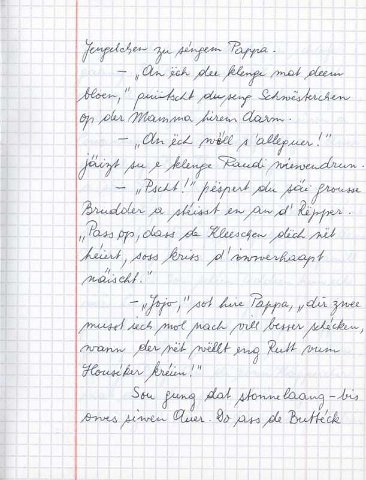 Jengelchen zu sengem Pappa.
– „An ëch dee klenge mat deem
bloen," puutscht du seng Schwësterchen
op der Mamma hirem Aarm.
– „An ëch wëll s'alleguer!"
jäizt su e klenge Raudi niewendrun.
– „Pscht!" pëspert du säi grousse
Brudder a stëisst en an d'Rëpper.
„Pass op, dass de Kleeschen dech nët
héiert, soss kriss d'iwwerhaapt
näischt."
– „Jojo," sot hire Pappa, „dir zwee
musst iech mol nach vill besser schécken,
wann der nët wëllt eng Rutt vum
Houseker kréien!"
Sou gung dat stonnelaang – bis
owes siwen Auer. Do ass de Buttéck